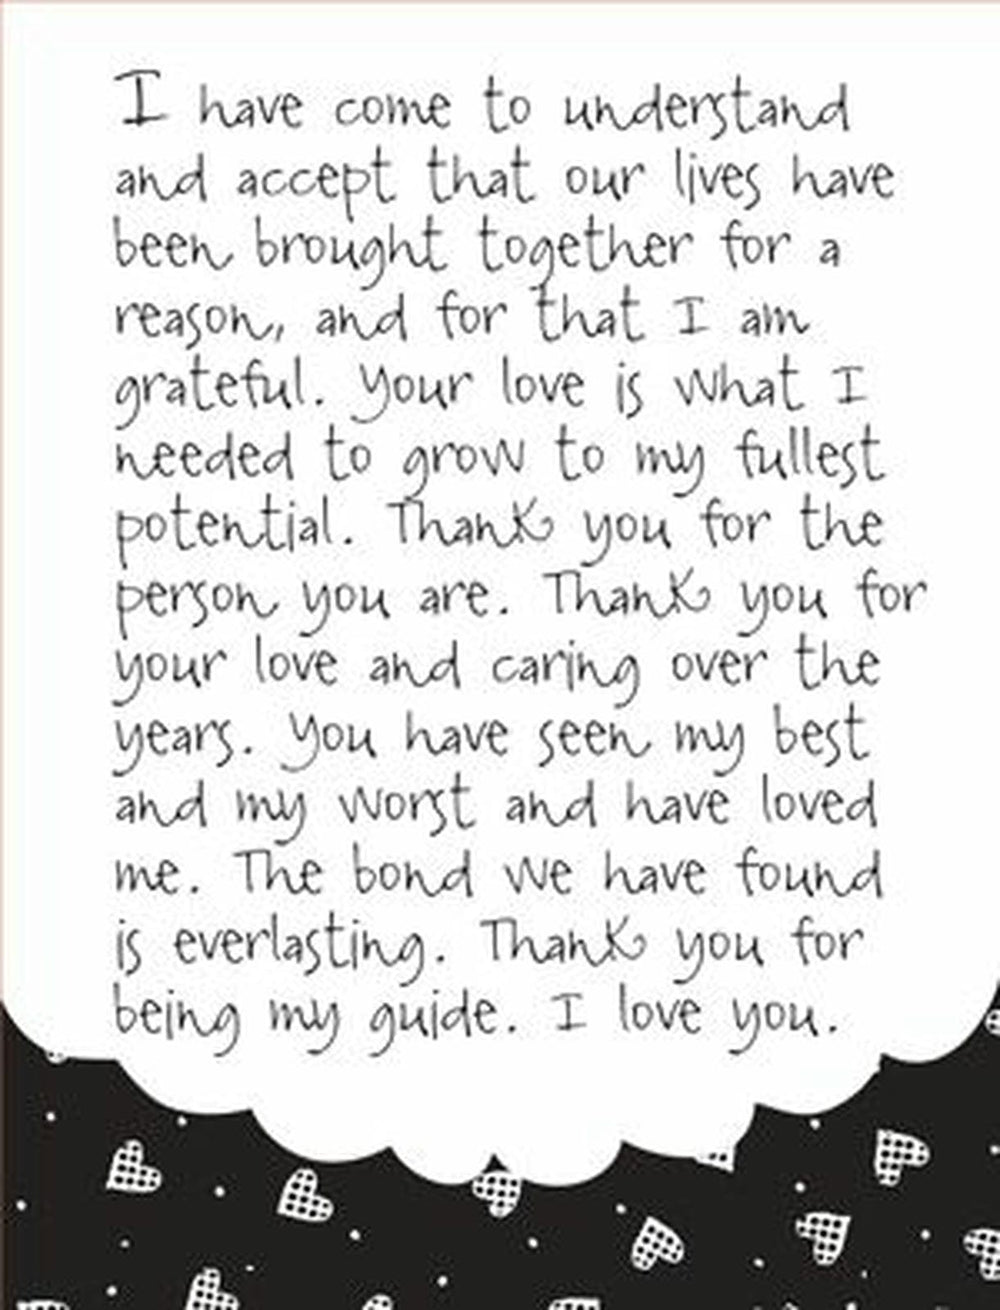 I have come to understand
and accept that our lives have
been brought together for a
reason, and for that I am
grateful. Your love is what I
needed to grow to my fullest
potential. Thank you for the
person you are. Thank you for
your love and caring over the
years. You have seen my best
and my worst and have loved
me. The bond we have found
is everlasting. Thank you for
being my guide. I love you.